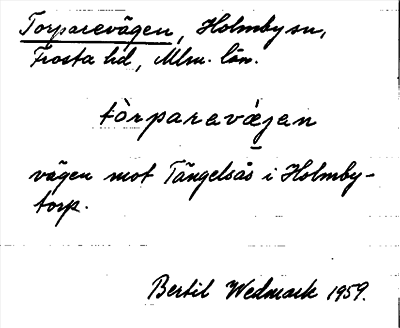 Torparevägen, Holmby sn,
Frosta hd, Mlm. län.
tòrparavä́jan
vägen mot Tängelsås i Holmby-
torp.
Bertil Wedmark 1959.